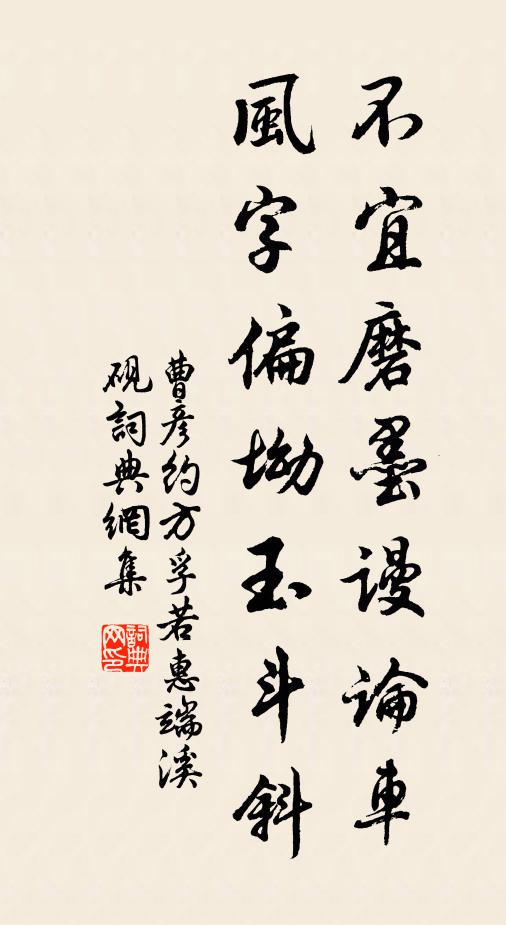 不宜磨墨謾論車
風字偏坳玉斗斜
曹彥約方孚若惠端溪
硯詞典網集
詞典網印